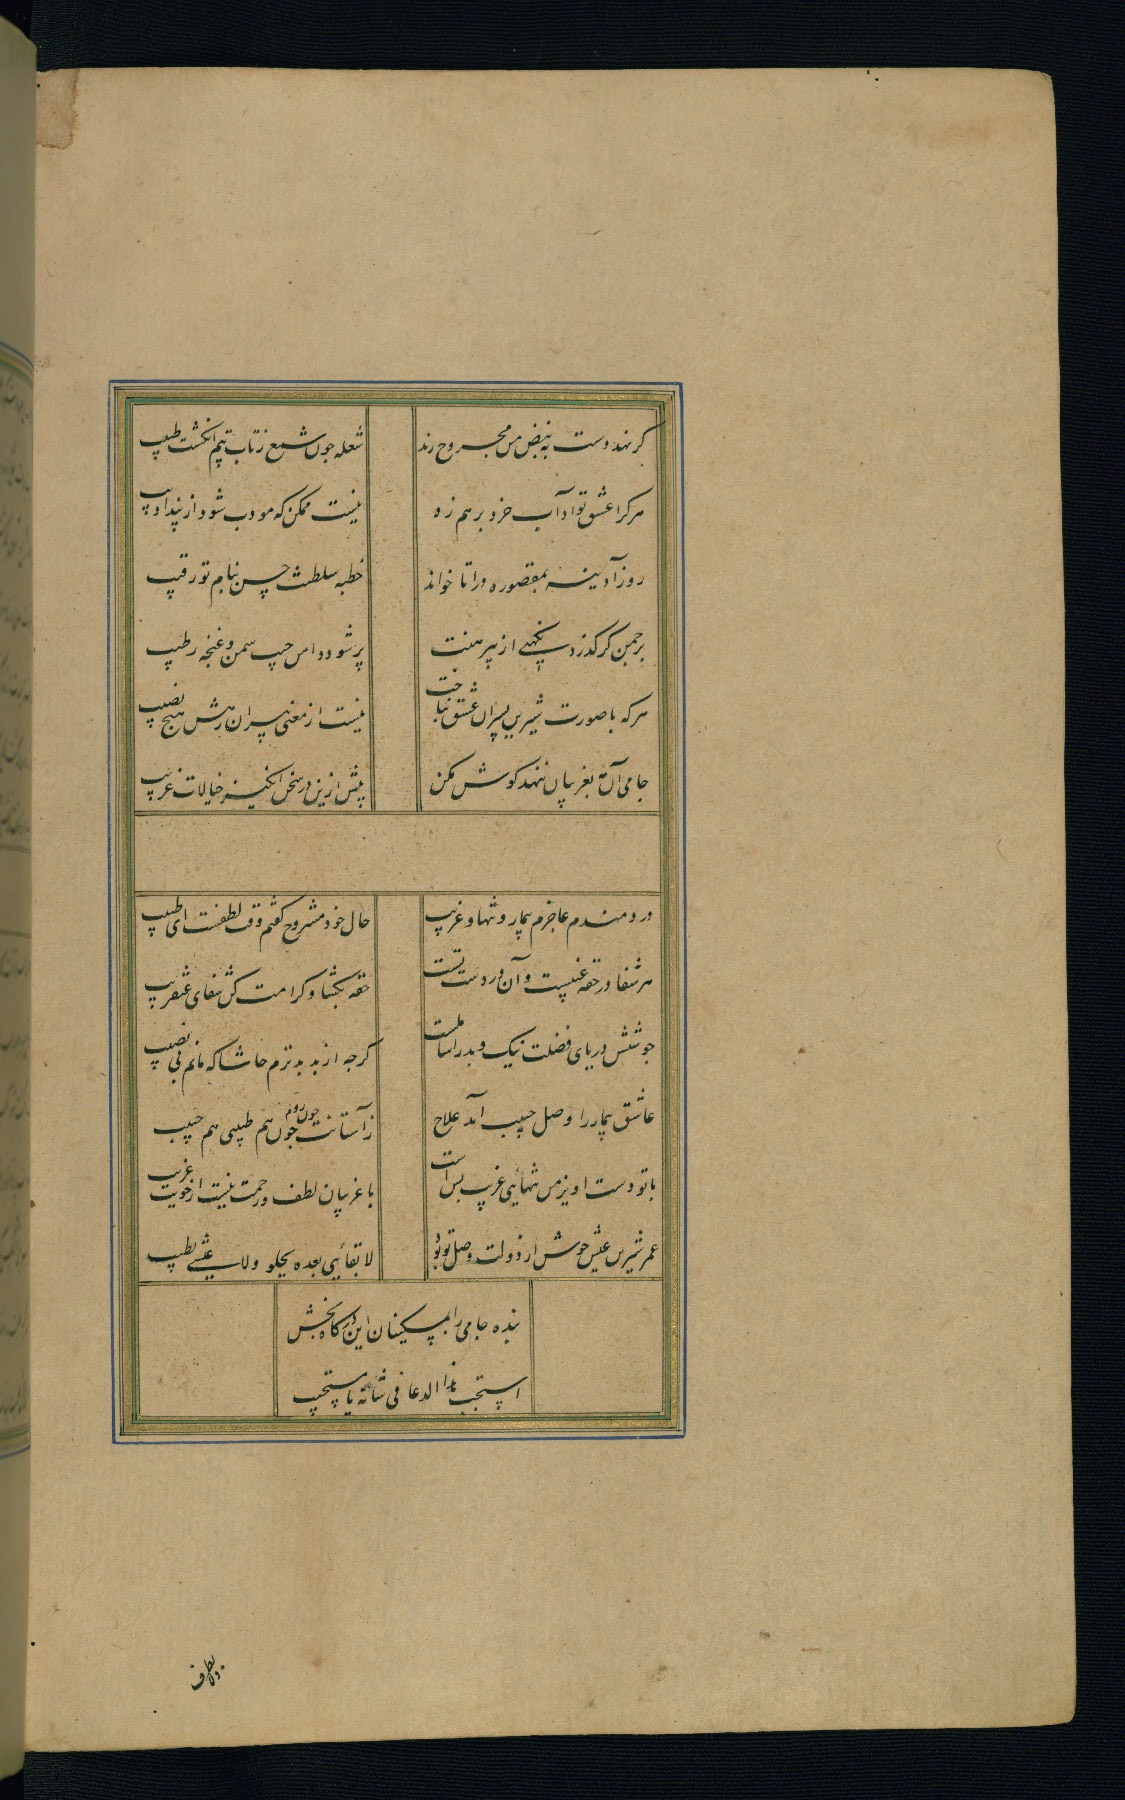 گر نهد دست به نبض من مجروح زند شعله چون شمع ز تاب تپم انگشت طبیب
هر کرا عشق تو آداب خرد بر هم زد نیست ممکن که مودب شود از پند ادیب
روز آدینه بمقصوره درا تا خواند خطبه سلطنت حسن بنام تو رقیب
بر چمن گر گذرد نکهتی از پیرهنت پر شود دامن جیب سمن و غنچه ز طیب
هر که با صورت شیرین پسران عشق نباخت نیست از معنی پیران رهش هیچ نصیب
جامی آن مه بغریبان ننهد گوش مکن پیش ازین در سخن انگیز خیالات غریب
دردمندم عاجزم بیمار و تنها و غریب حال خود مشروح گفتم وقت لطفست ای طبیب
هر شفا در حقه غیبست و آن در دست تست حقه بگشا و کرامت کن شفای عنقریب
جوشش دریای فضلت نیک و بد را شاملست گرچه از بد بدترم حاشا که مانم بی نصیب
عاشق بیمار را وصل حبیب آمد علاج ز آستانت چون روم چون هم طبیبی هم حبیب
با تو دست آویز من تنهایی غریب بس است با غریبان لطف و رحمت نیست از خویت غریب
عمر شیرین عیش خوش از دولت وصل تو بود لا بقائی بعده یحلو ولا عیشی یطیب
بنده جامی را بمسکینان این درگاه بخش
استجب هذا الدعا فی شانه یا مستجیب